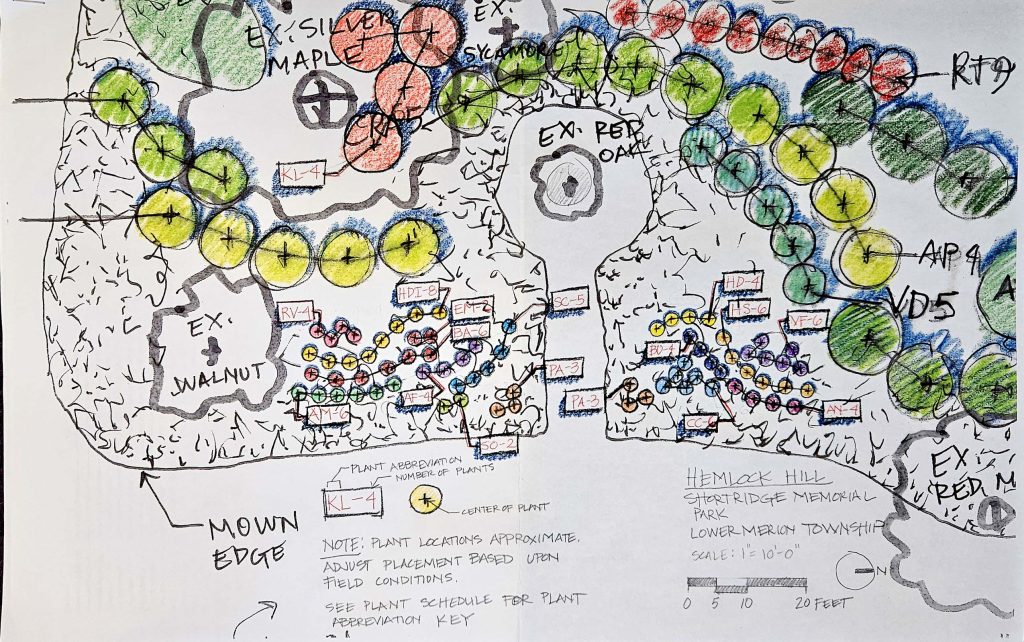 EX. SILVER
MAPLE
EX.
SYCAMORE
CRAE
KL-4
EX. RED
OAK
RT9
AP4
VD5
A
EX.
WALNUT
RV-4
HDI-8
EM-2
BA-6
SC-5
PA-3
AF-4
AM-6
SO-2
HD-4
HS-6
VF-6
BD-4
PA-3
CC-6
AN-4
EX.
RED M
MOWN
EDGE
PLANT ABBREVIATION
NUMBER OF PLANTS
KL-4
CENTER OF PLANT
NOTE: PLANT LOCATIONS APPROXIMATE.
ADJUST PLACEMENT BASED UPON
FIELD CONDITIONS.
SEE PLANT SCHEDULE FOR PLANT
ABBREVIATION KEY
HEMLOCK HILL
SHORTRIDGE MEMORIAL
PARK
LOWER MERION TOWNSHIP
SCALE: 1"=10'-0"
N
0 5 10 20 FEET